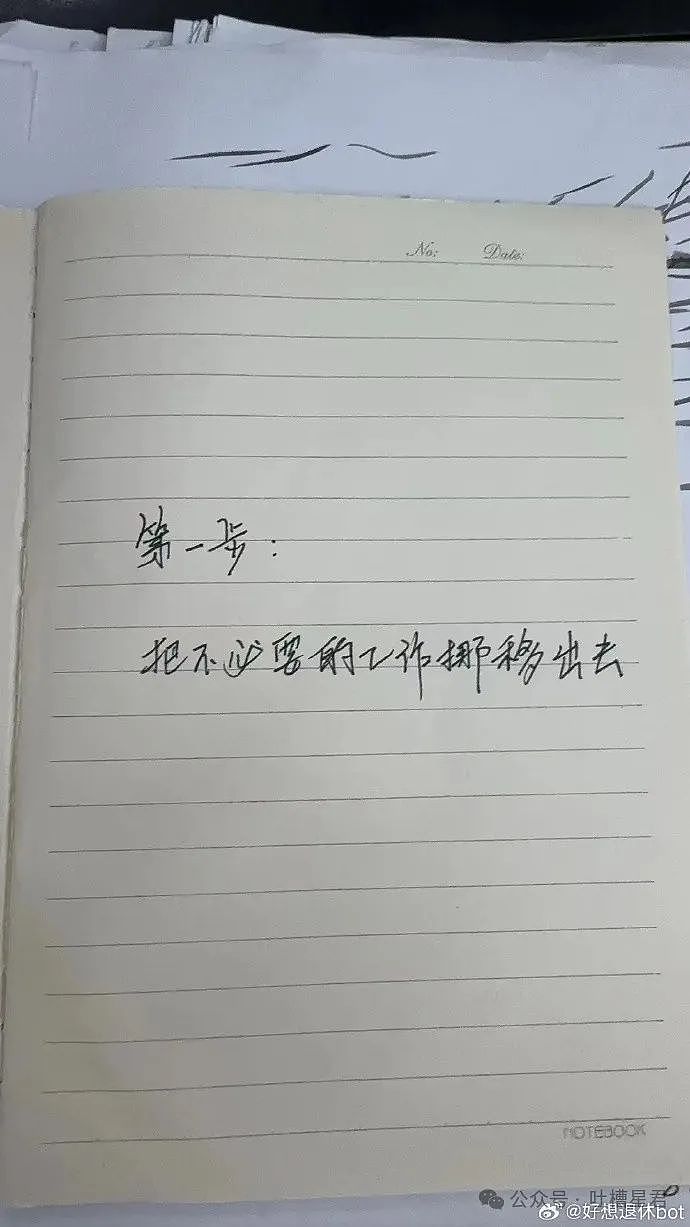 No: Date:
第一步:
把不必要的工作挪移出去
NOTEBOOK
公众号·吐槽星君
@好想退休bot